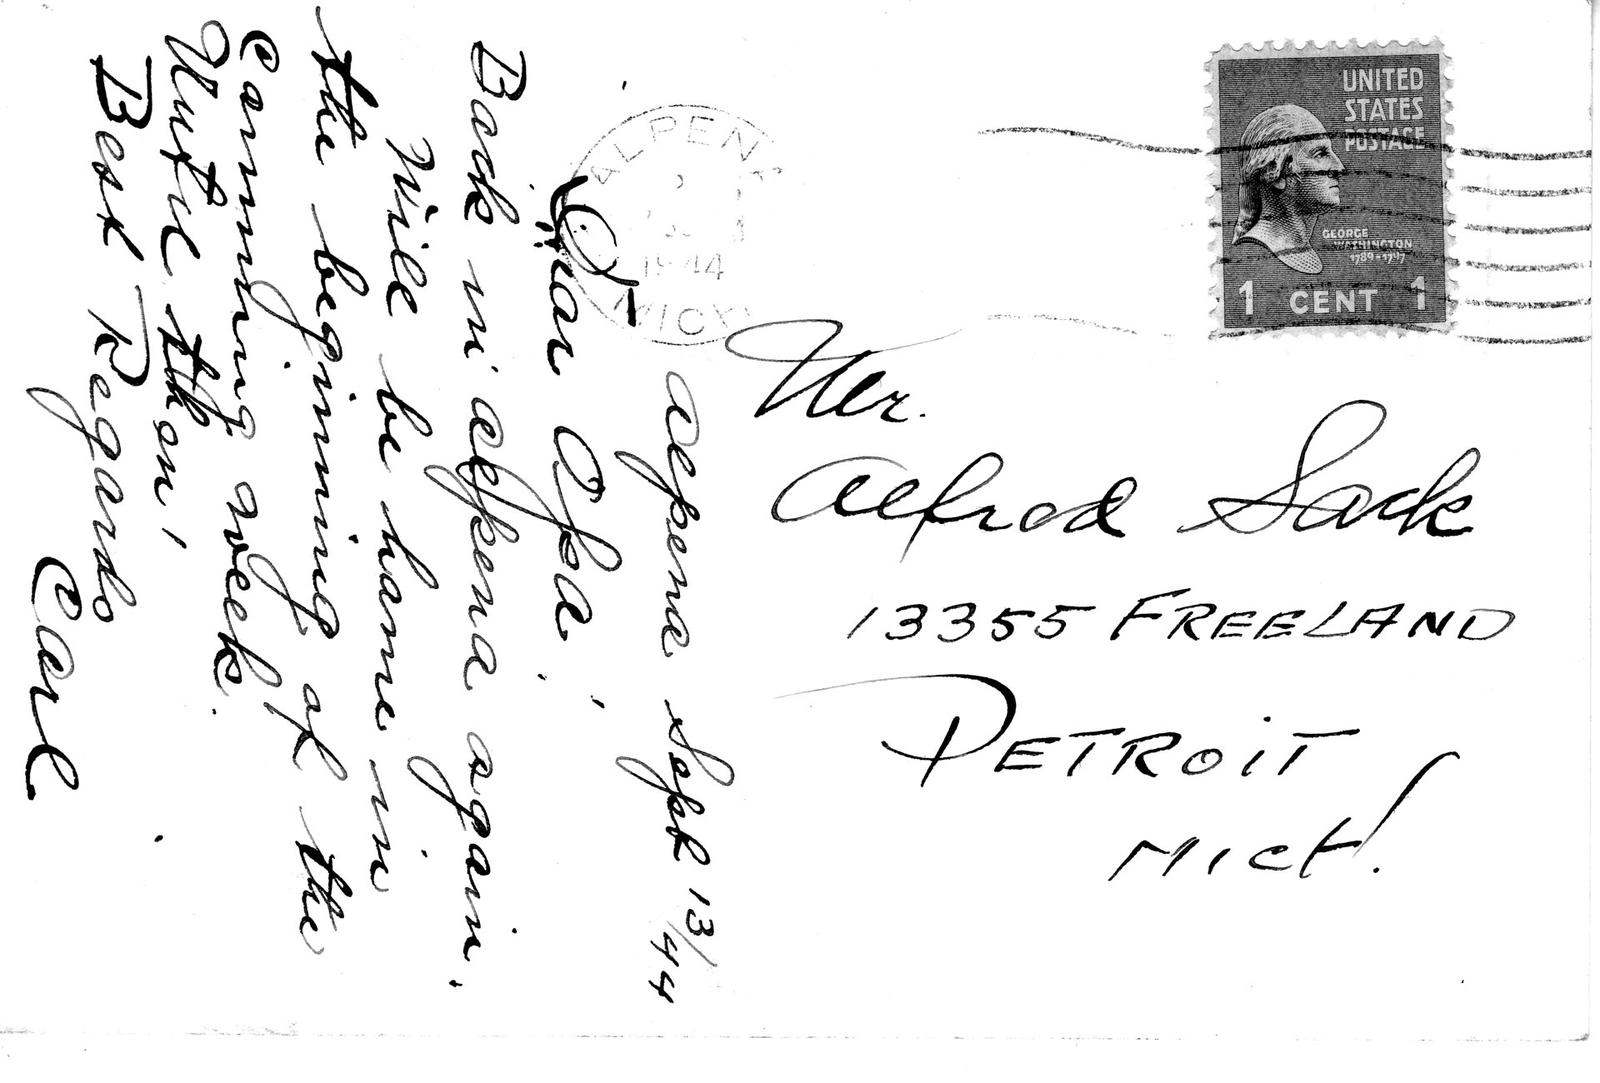 Alpena Sept 13/44
Dear Opa,
Back in Alpena again.
Will be home in
the begining of the
Comming week.
Until then!
Best Regards
Carl
ALPENA
1944
MICH
UNITED
STATES
POSTAGE
GEORGE
WASHINGTON
1789-1797
1 CENT 1
Mr.
Alfred Sack
13355 FREELAND
DETROIT
Mich!